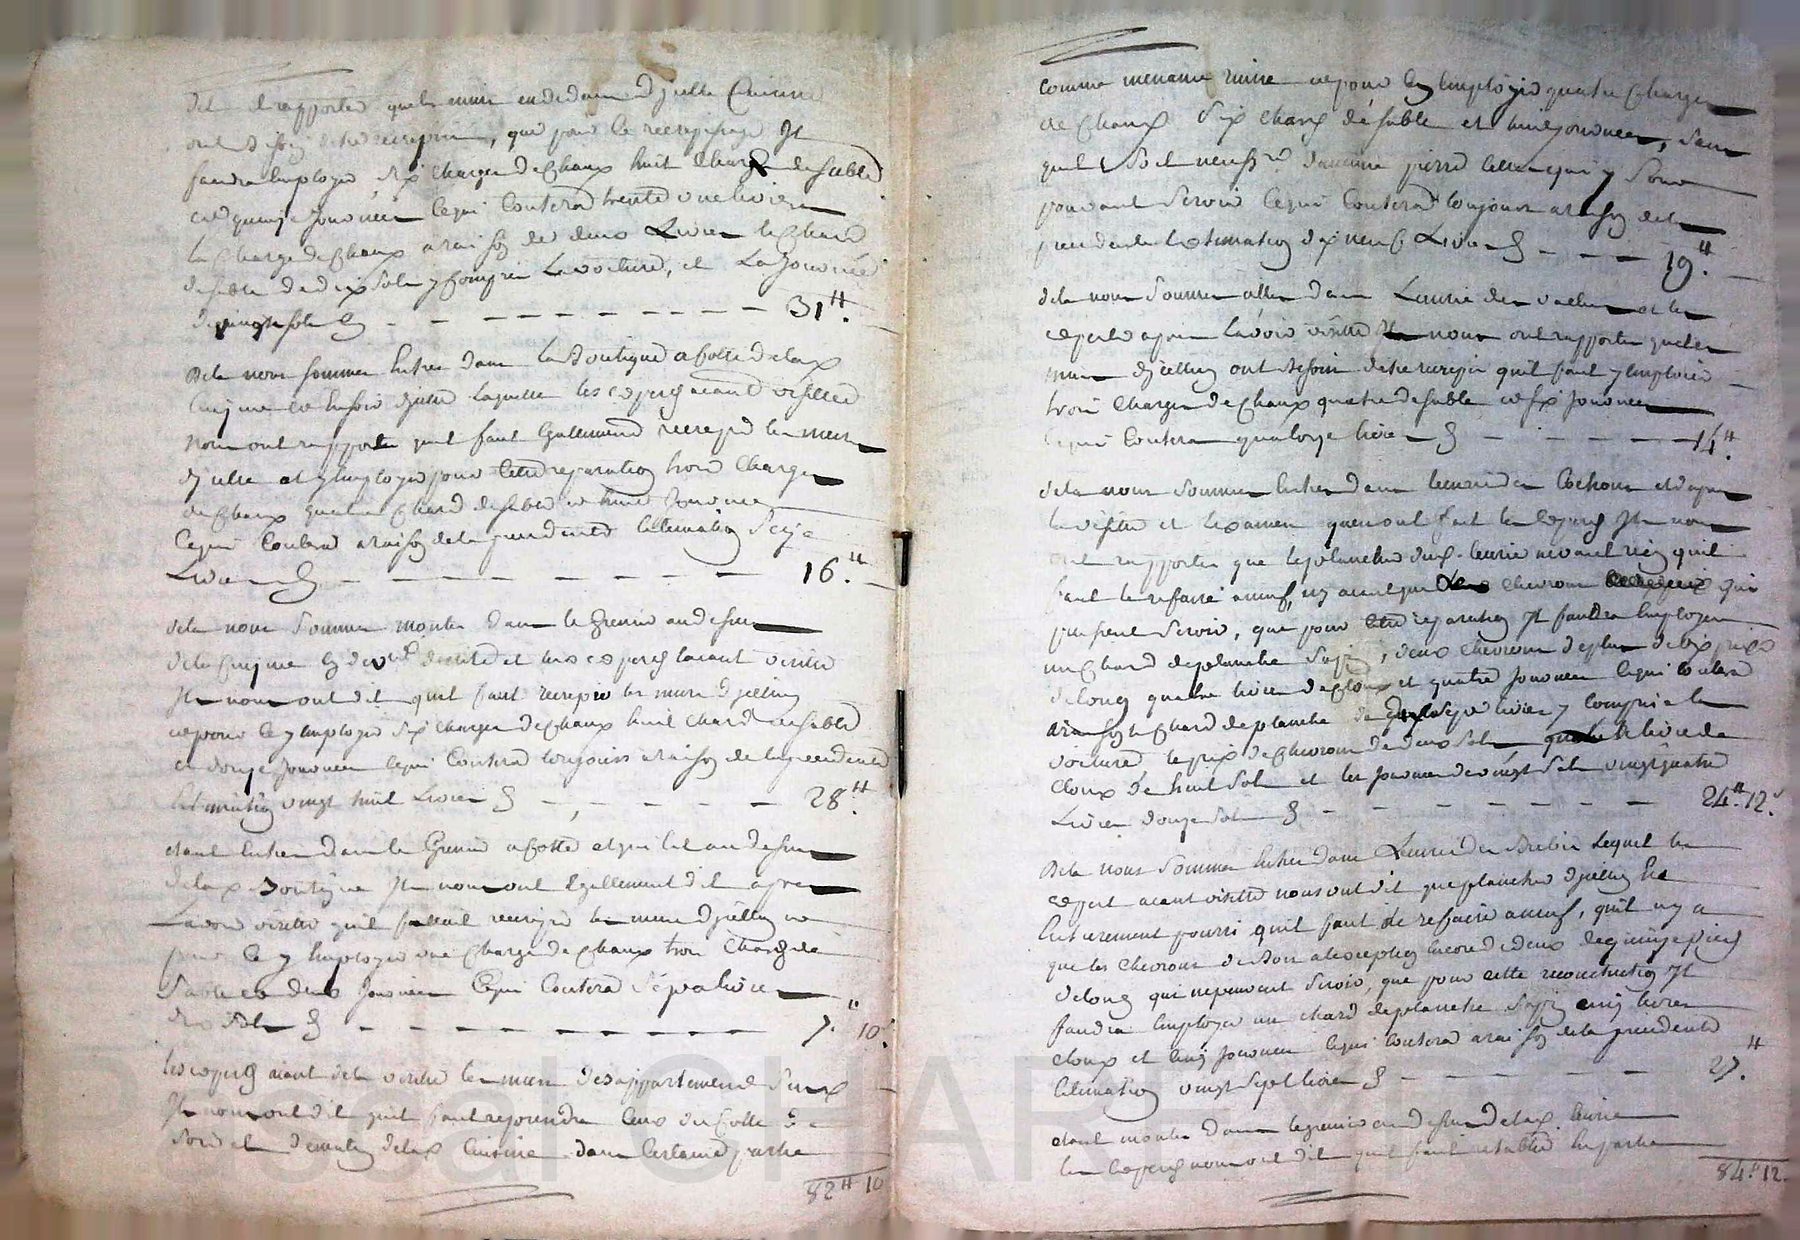 dit et rapporté que les murs en dedans d'jcelle Cuisine
ont besoin detre recrepis, que pour le recrepissage Jl
faudra Employer six charges de Chaux huit chars de sable
et quinze Journées Cequi Coutera trente une livres
la Charge de Chaux a raison de deux Livres le Chard
de sable de dix sols y compris La voiture, et La Journée
de vingt sols 31.tt
Dela nous sommes Entres dans la Boutique a Costé de lax
Cuisine et Ensuite jcelle laquelle les experts aiant visittee
Nous ont rapporté quil faut Egallement recrepir les murs
djcelle et y Employer pour Cette reparation trois Charges
de Chaux quatre Chard de sable et huit Journees
Cequi Coutera a raison de la precedente Estimation Seize
Livres 16.tt
dela nous Sommes montes dans le Grenier au dessus
dela Cuisine et les experts laiant visitté
Jls nous ont dit quil faut recrepir les murs djcelluy
et pour Ce y Employer six charges de Chaux huit Chard de sable
et douze Journees Cequi Coutera toujours a raison de la precedente
Estimation vingt huit Livres 28.tt
etant Entres dans le Grenier a Costé et qui Est au dessus
delax Boutique Jls nous ont Egallement dit apres
Lavoir visitté quil falloit recrepir les murs djcelluy et
pour Ce y Employer une Charge de Chaux trois Chard de
Sable et deux Journees Cequi Coutera Sept livres
dix Sols 7.tt 10.s
les experts aiant dela visitté les murs des appartements Susx
Jls nous ont dit quil faut rejoindre Ceux du Costé de
Soir et de matin delax Cuisine dans Certaine partie
82tt 10
Comme menacant ruine et pour Ce y Employer quatre Charges
de Chaux Six Chard de sable et huit journees, sans
quil Soit necess.re d'aucune pierre Celles qui y Sont
pouvant Servir Cequi Coutera toujours a raison de la
precedente Estimation dix neuf Livres 19.tt
dela nous Sommes alles dans Leurie des vaches et les
experts apres Lavoir visitté Jls nous ont rapporté que les
murs djcelluy ont Besoin detre recrepis quil faut y Emploier
trois Charges de Chaux quatre de sable et six Journees
Cequi Coutera quatorze livres 14.tt
dela nous Sommes Entres dans leurie des Cochons et dapres
la visitte et lexamen quen ont fait les Experts Jls nous
ont rapporté que le planché dux leurie ne vaut rien quil
faut le refaire a neuf, ny aiant que chevrons qui
puissent Servir, que pour Cette reparation Jl faudra Employer
un Chard de planche Sapin, deux chevrons de plus de dix pieds
de long quatre livres de Cloux et quatre Journees Cequi Coutera
a raison le Chard de planche de Seize livres y Compris la
voiture le prix de Chevrons de deux Sols la livre de
Cloux de huit Sols et les Journees de vingt Sols vingt quatre
Livres douze Sols 24.tt 12.s
Dela nous Sommes Entres dans Leurie des Brebis Lequel les
expert aiant visitté nous ont dit que planche djcelluy Est
Entierement pourri quil faut le refaire a neuf, quil ny a
que les Chevrons de Bon a lexception Encore de deux de quinze pieds
de long qui ne peuvent Servir, que pour cette reconstruction Jl
faudra Employer un chard de planche Sapin cinq livres
cloux et Cinq Journees Cequi Coutera a raison de la precedente
Estimation vingt Sept livres 27.tt
etant montes dans le grenier au dessus delax leurie
les Experts nous ont dit quil faut retablir la partie
84.tt 12.
Pascal CHAREYRON